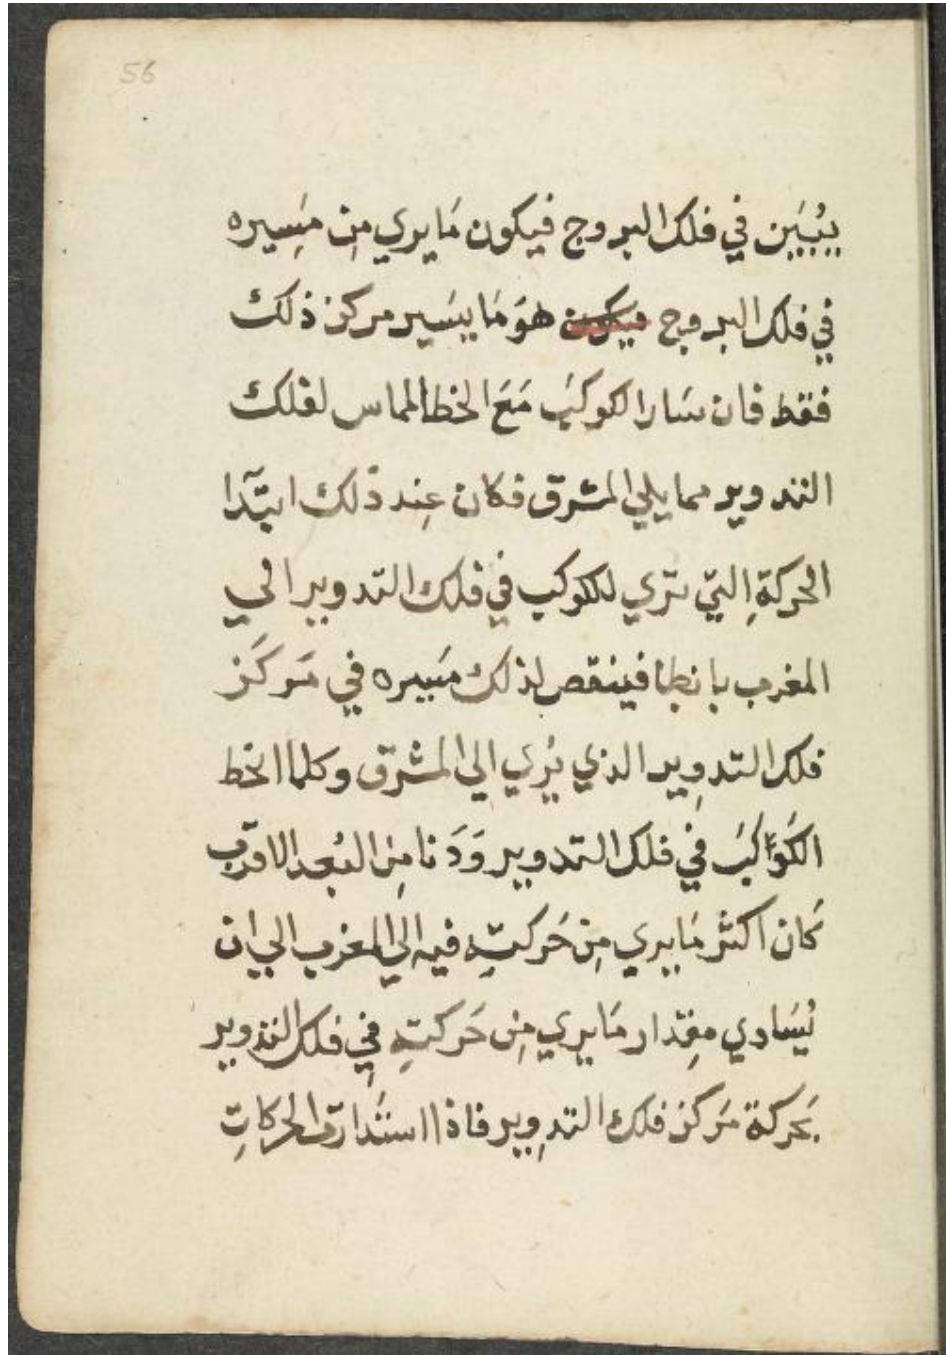 56
يبُبَين في فلك البروج فيكون مَا يري مِن مَسِيره
في فلك البروج فيكون هوَ مَا يسَير مركز ذلك
فقط فان سَار الكوكبَ مَعَ الخط المماس لفلك
التدوير مما يلي المشرق فكان عِند ذلك ابتدَآ
الحركةِ التيّ ترَي للكوكب في فلك التدوير الي
المغرب بابطا فينقص لذلك مَسيره في مَركَز
فلك التدوِير الذي يُرَي الي المشرق وكلما انخط
الكَوَاكبَ في فلك التدوير وَدَنا مِن البُعد الاقرَب
كَان اكثر مَا يري مِن حَركتِه فيه الي المغرب الي ان
يُسَاوي مِقدار مَا يري مِن حَركتِه فِي فلك التدوير
بحَركة مَركز فلك التدوِير فاذا استَدارت الحركاتِ